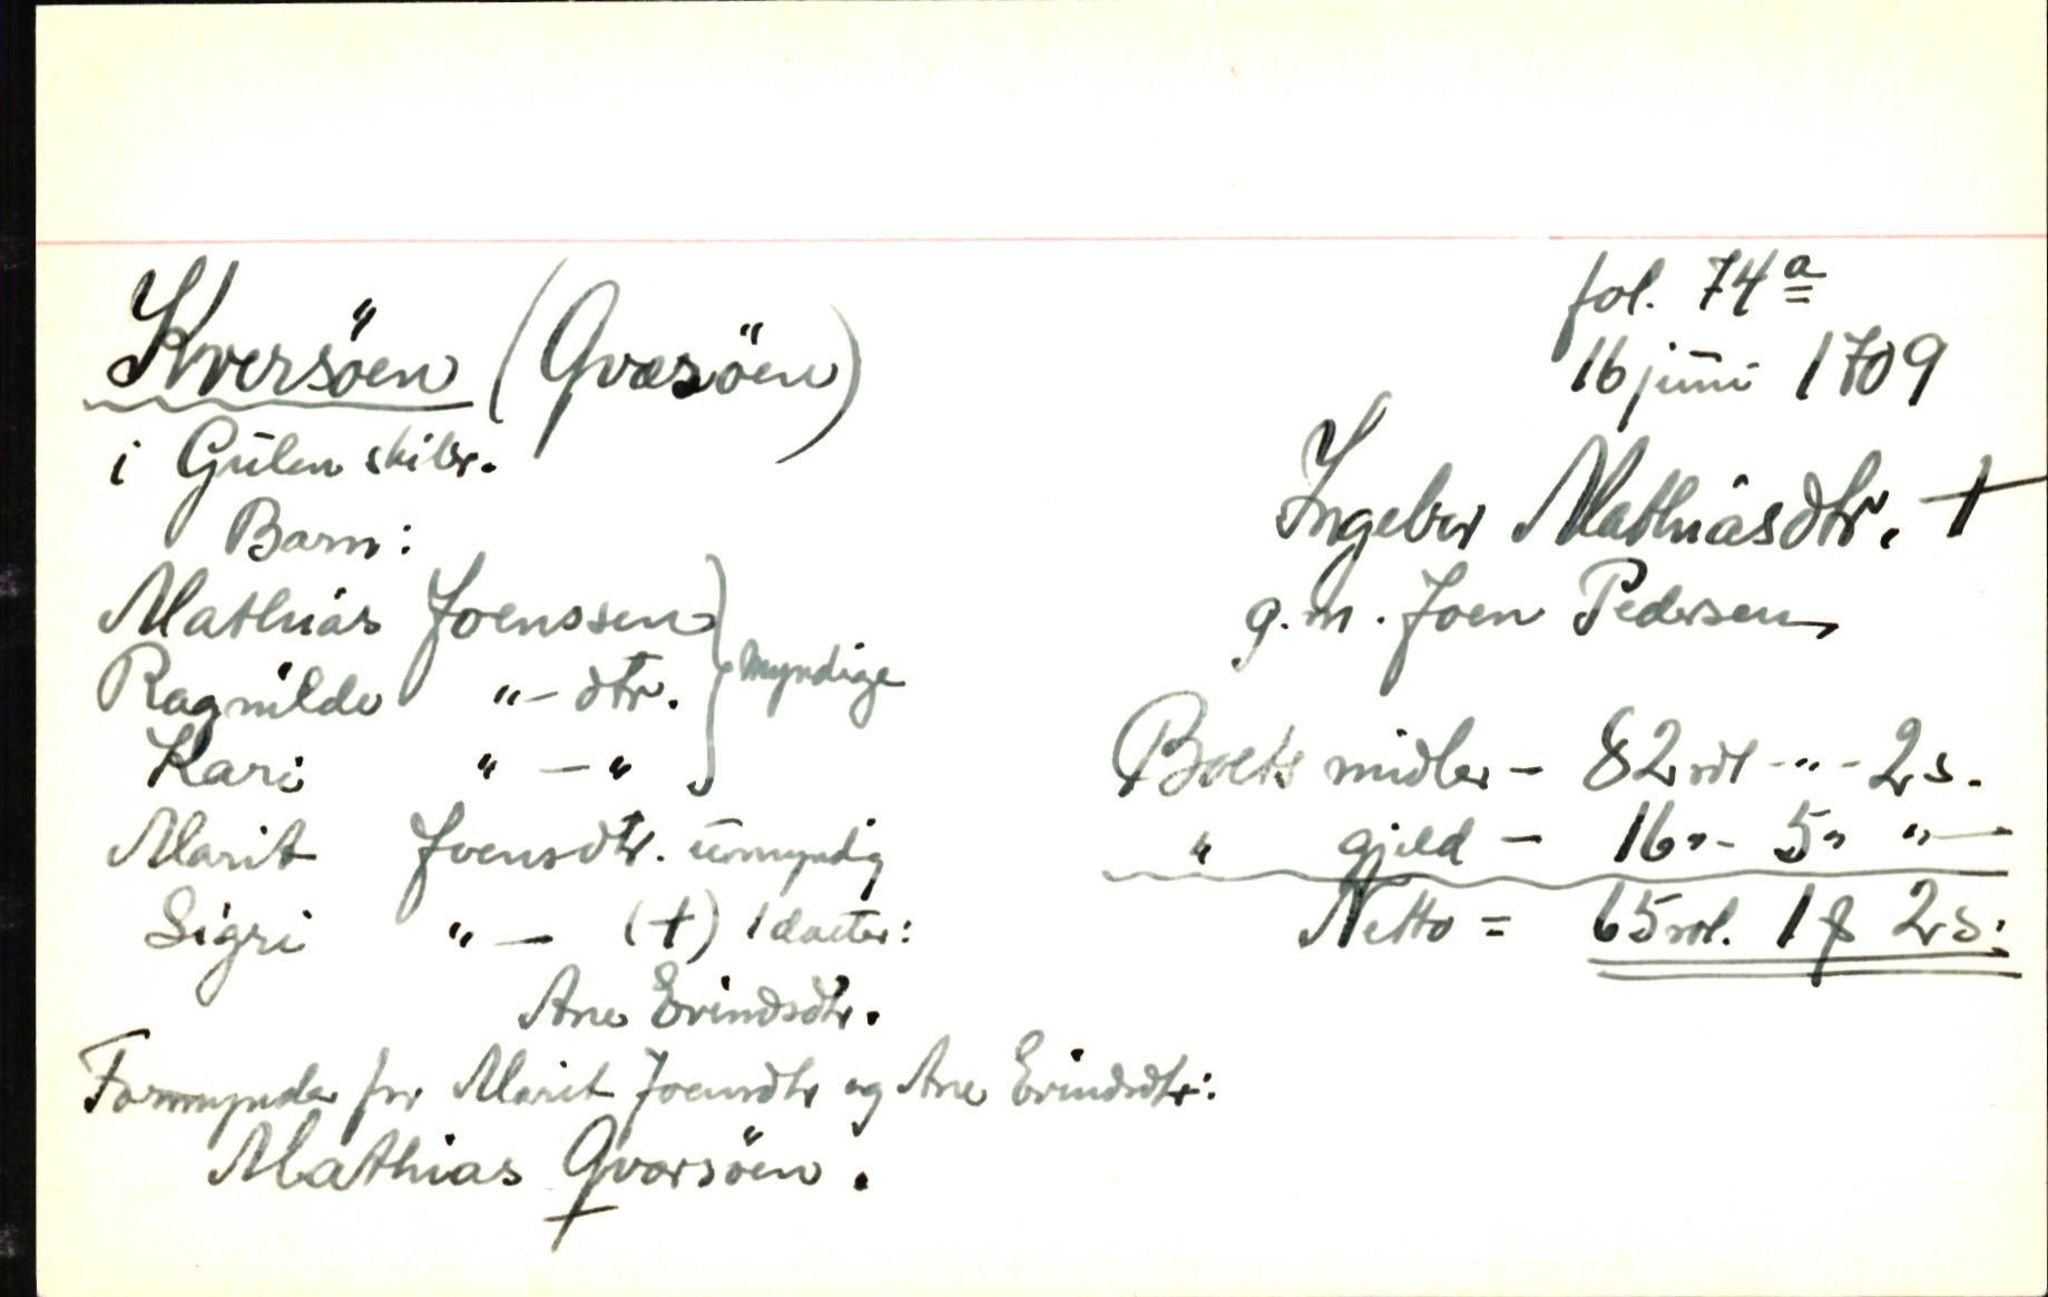 Kversöen (Qvæsöen)
i Gulen skibr.
Barn:
Mathias Joenssen
Ragnilde "- dtr.
Kari " - "
myndige
Marit Joensdtr. umyndig
Sigri " - (+) 1 datter:
Ane Evindsdtr.
Formynder for Marit Joensdtr og Ane Evindsdtr:
Mathias Qværsöen.
fol. 74 a
16 juni 1709
Ingebor Mathiasdtr. +
g.m. Joen Pedersen
Boets midler - 82 rdl - " - 2 s.
" gjeld - 16 " - 5 " " -
Netto = 65 rdl. 1 ƒ 2 s.